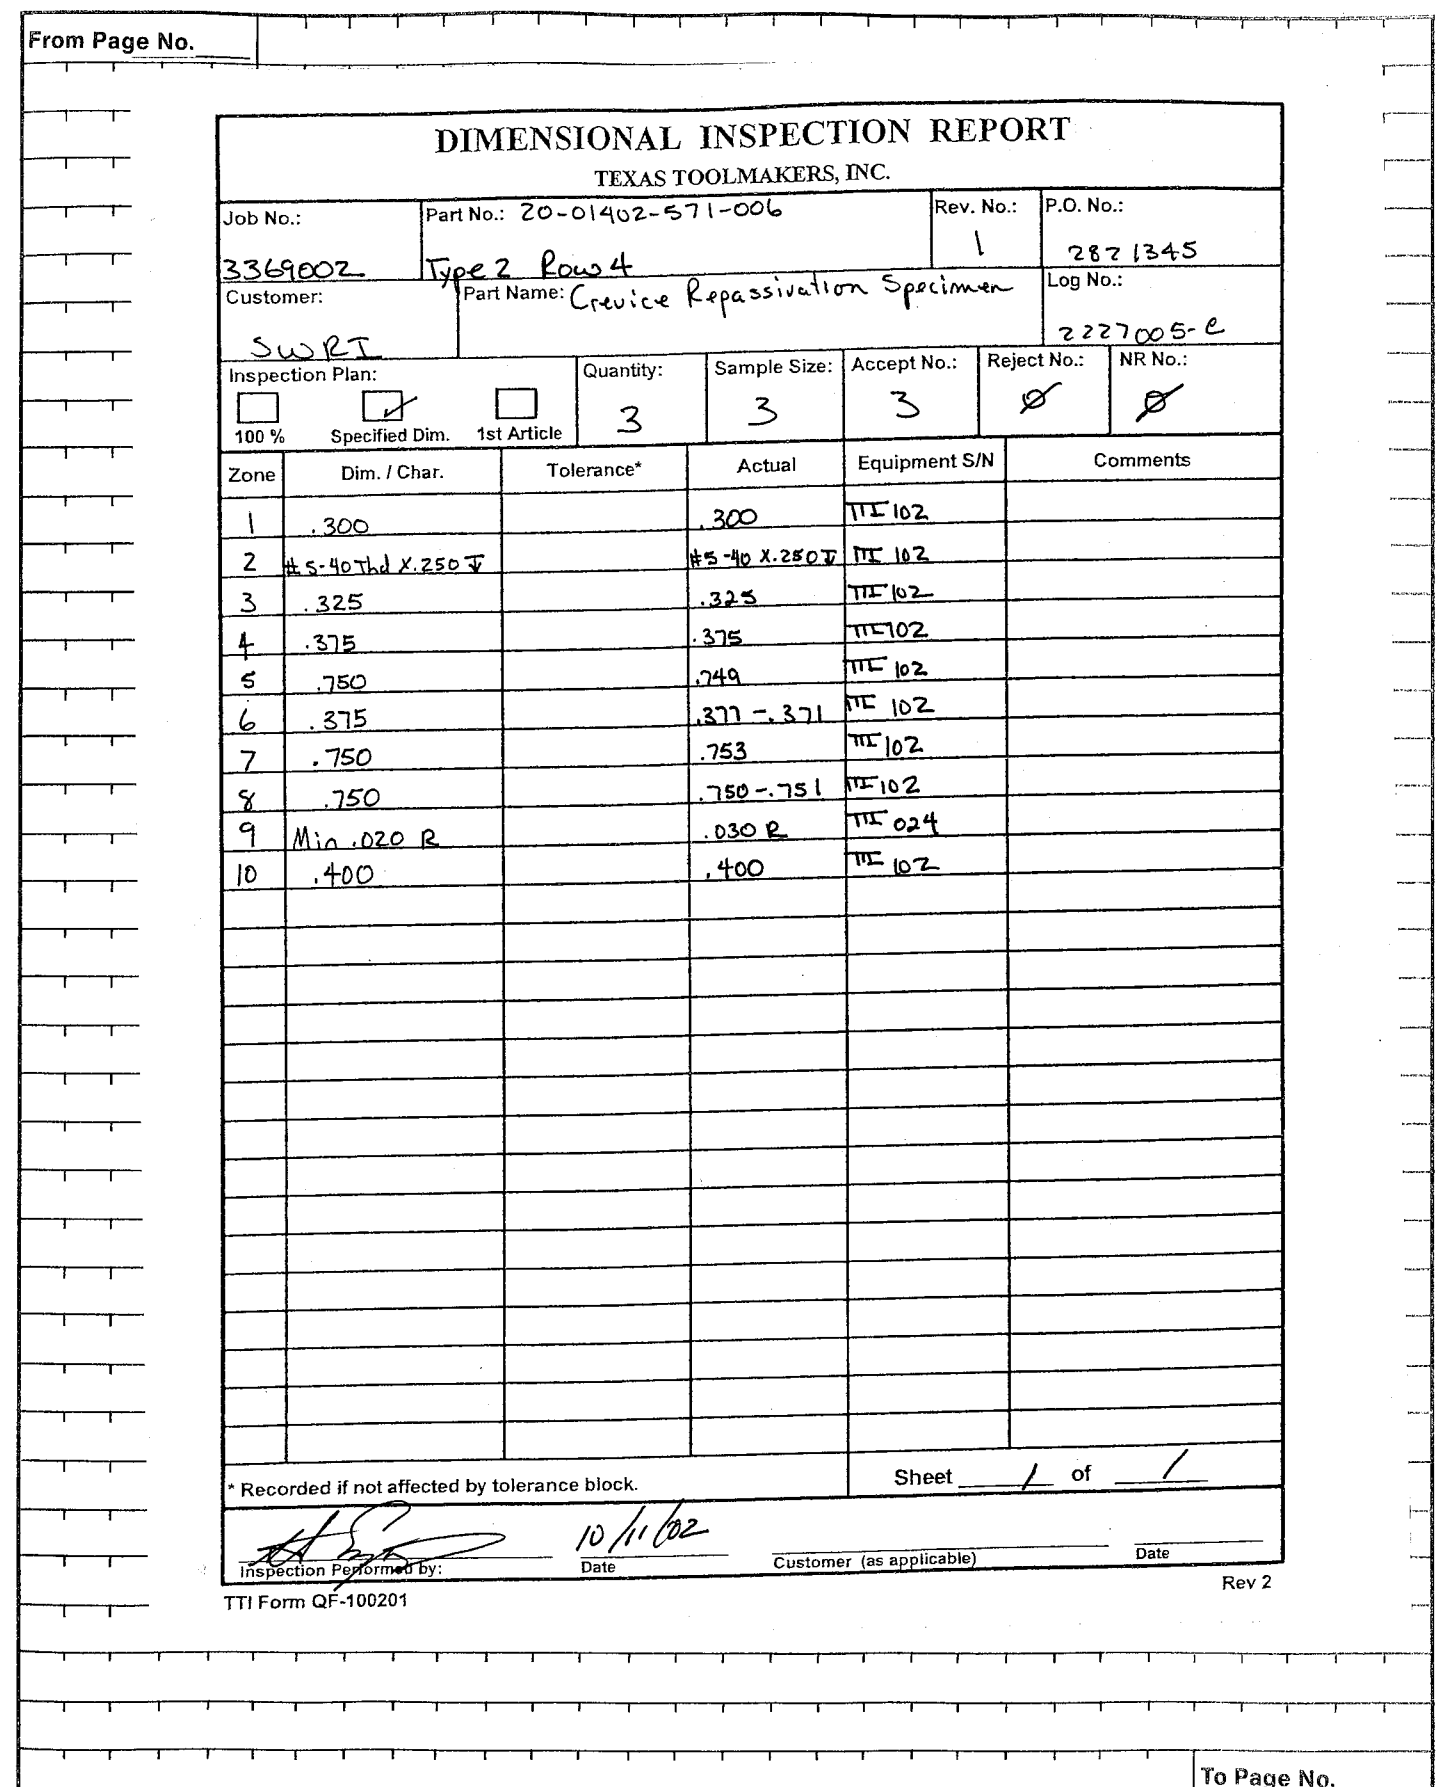 From Page No.
DIMENSIONAL INSPECTION REPORT
TEXAS TOOLMAKERS, INC.
Job No.: Part No.: 20-01402-571-006 Rev. No.: P.O. No.:
3369002 Type 2 Row 4 1 2821345
Customer: Part Name: Crevice Repassivation Specimen Log No.:
SWRI 2227005-C
Inspection Plan: Quantity: Sample Size: Accept No.: Reject No.: NR No.:
3 3 3 Ø Ø
100 % Specified Dim. 1st Article
Zone Dim. / Char. Tolerance* Actual Equipment S/N Comments
1 .300 .300 TTI 102
2 #5-40 Thd X .250 ↧ #5-40 X .250 ↧ TTI 102
3 .325 .325 TTI 102
4 .375 .375 TTI 102
5 .750 .749 TTI 102
6 .375 .377 - .371 TTI 102
7 .750 .753 TTI 102
8 .750 .750 - .751 TTI 102
9 Min .020 R .030 R TTI 024
10 .400 .400 TTI 102
* Recorded if not affected by tolerance block. Sheet 1 of 1
10/11/02
Inspection Performed by: Date Customer (as applicable) Date
TTI Form QF-100201 Rev 2
To Page No.